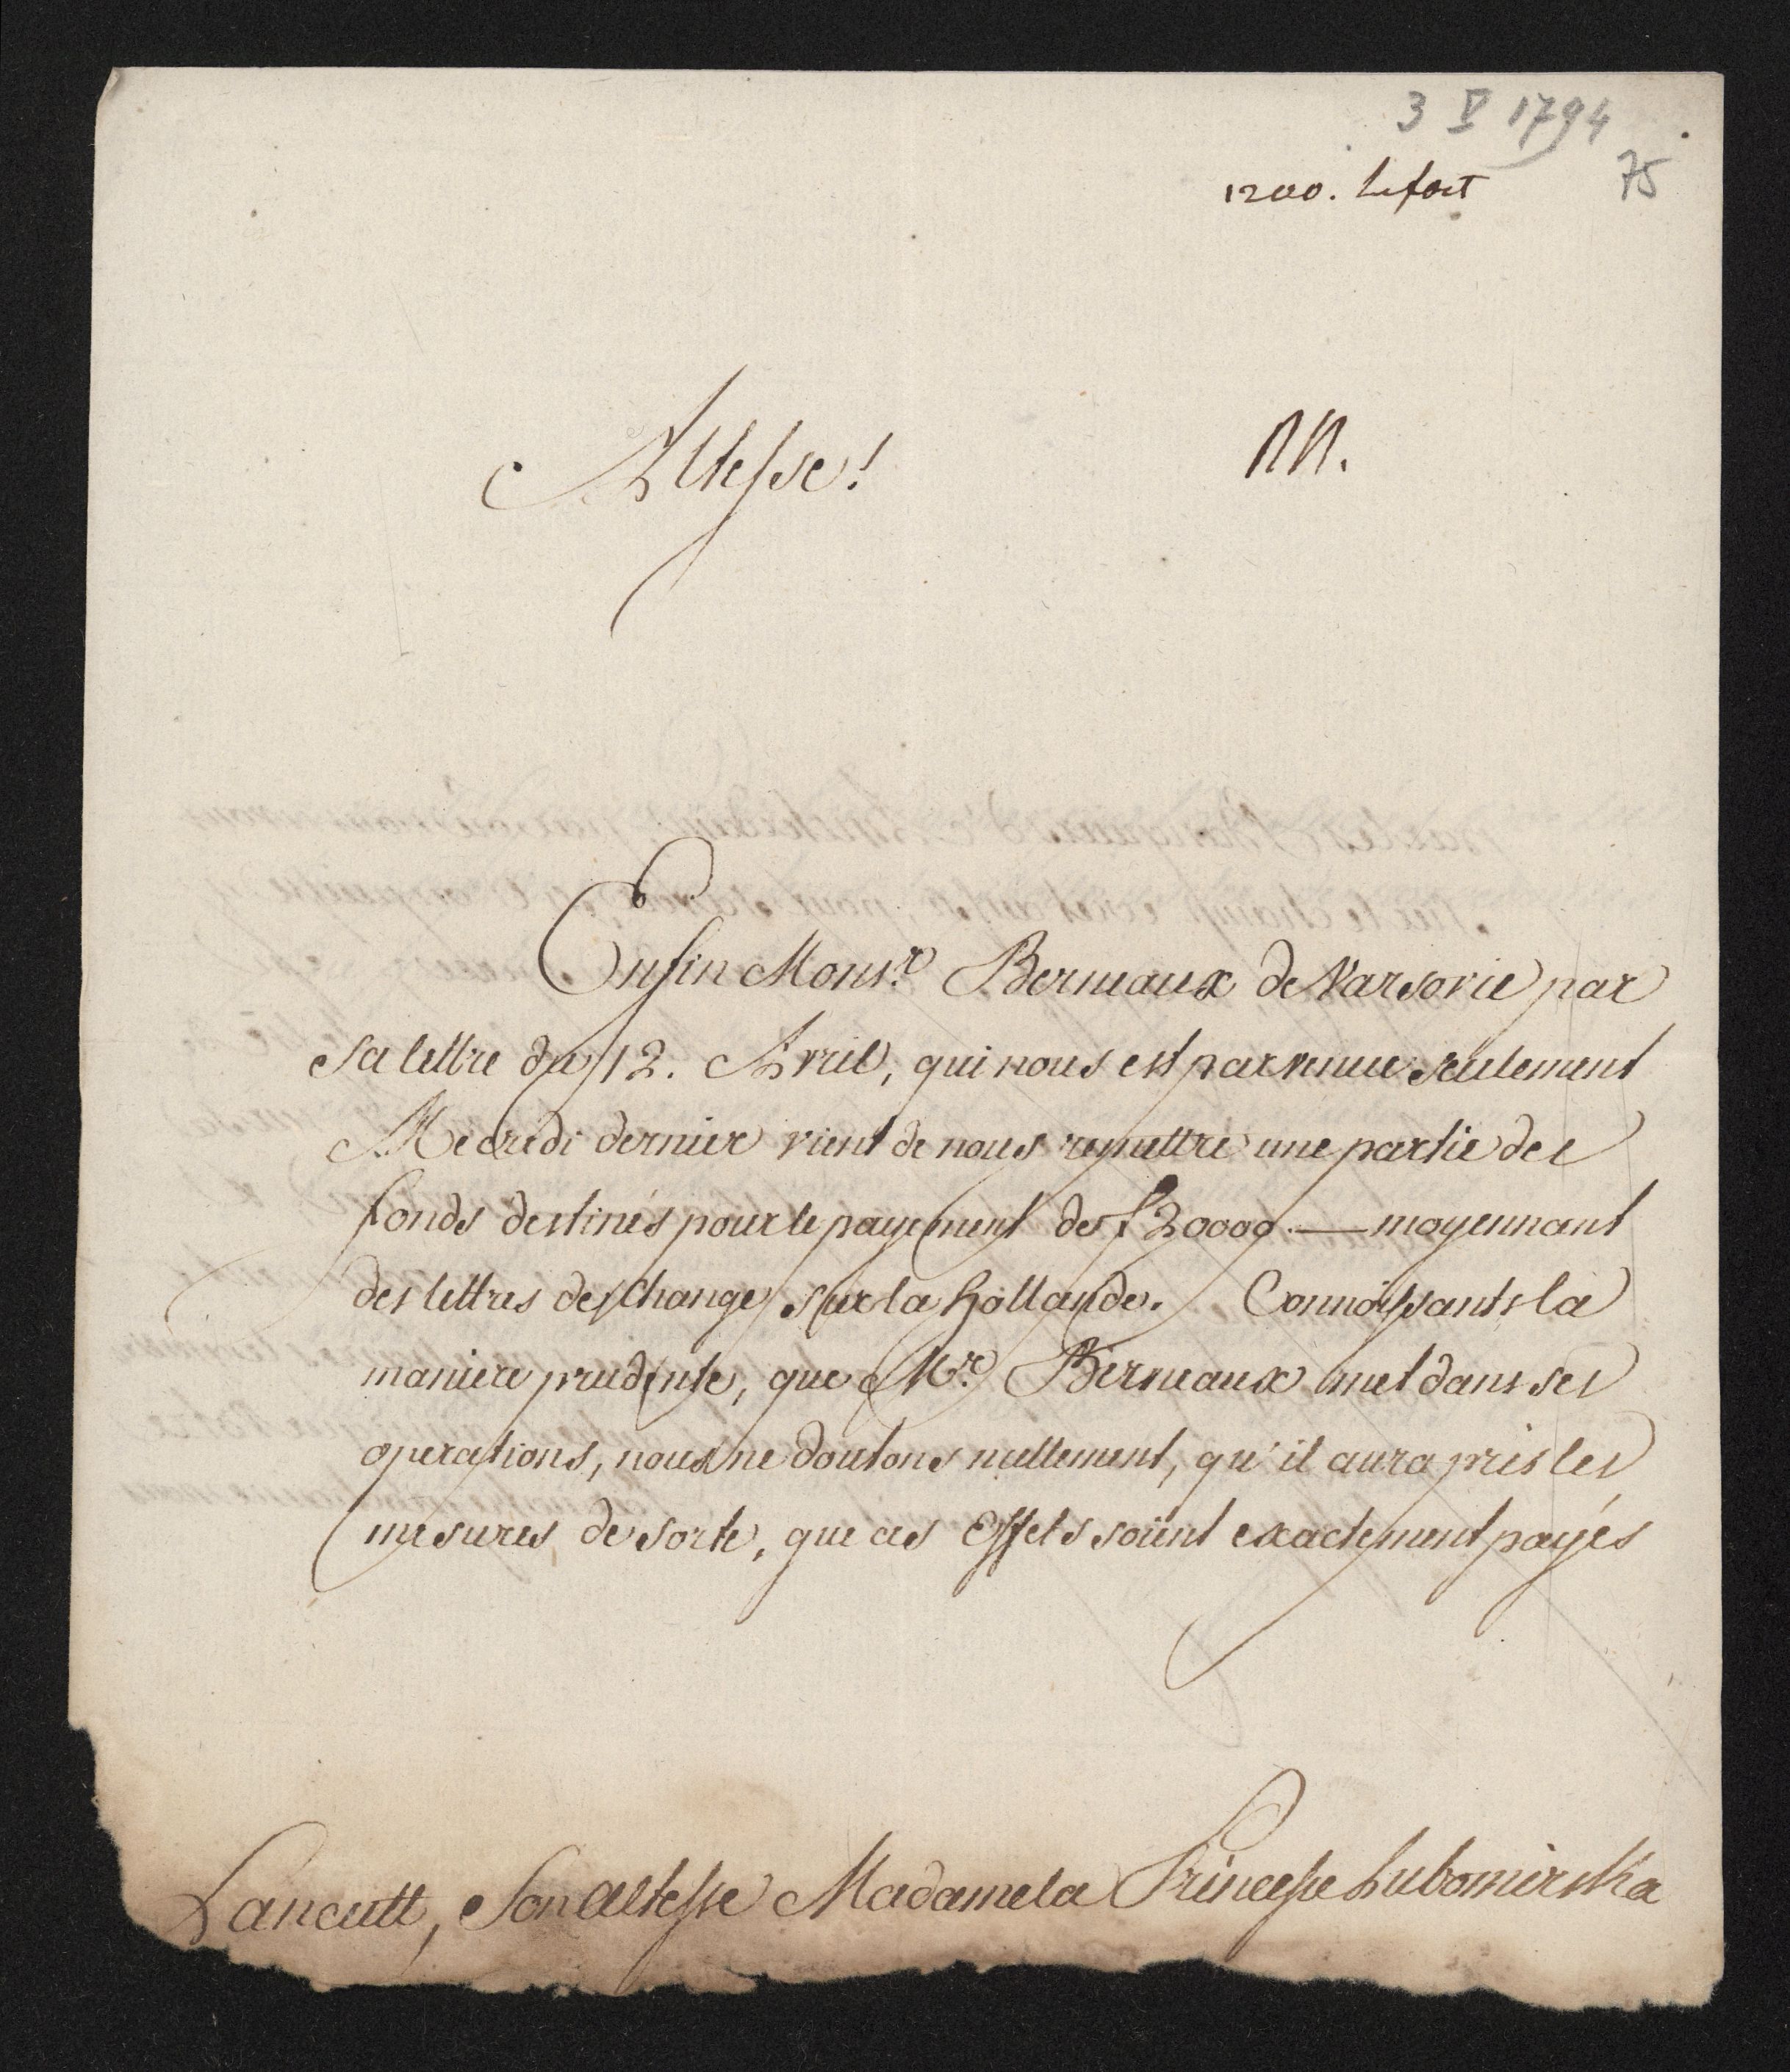 3 V 1794
75
1200. Lefort
Altesse!
NN.
Enfin Monsr. Berneaux de Varsovie par
sa lettre du 12. Avril, qui nous est parvenue seulement
Mecredi dernier vient de nous remettre une partie des
fonds destinés pour le payement des f 20000.— moyennant
des lettres de change sur la Hollande. Connoissants la
maniere prudente, que Mr. Berneaux met dans ses
operations, nous ne doutons nullement, qu'il aura pris les
mesures de sorte, que ces Effets soïent exactement payés
Lancutt, Son Altesse Madame la Princesse Lubomirska